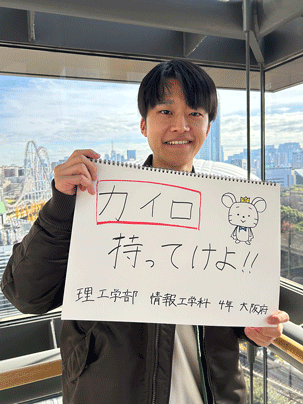 カイロ
持ってけよ!!
理工学部 情報工学科 4年 大阪府